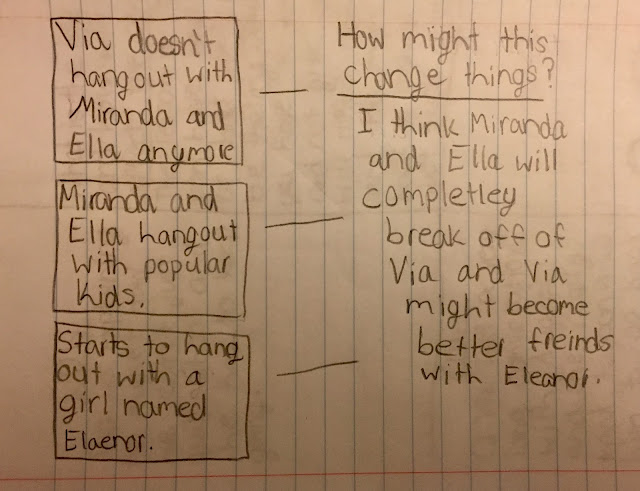 Via doesn't
hangout with
Miranda and
Ella anymore
Miranda and
Ella hangout
with popular
kids.
Starts to hang
out with a
girl named
Elaenor.
How might this
change things?
I think Miranda
and Ella will
completley
break off of
Via and Via
might become
better freinds
with Eleanor.